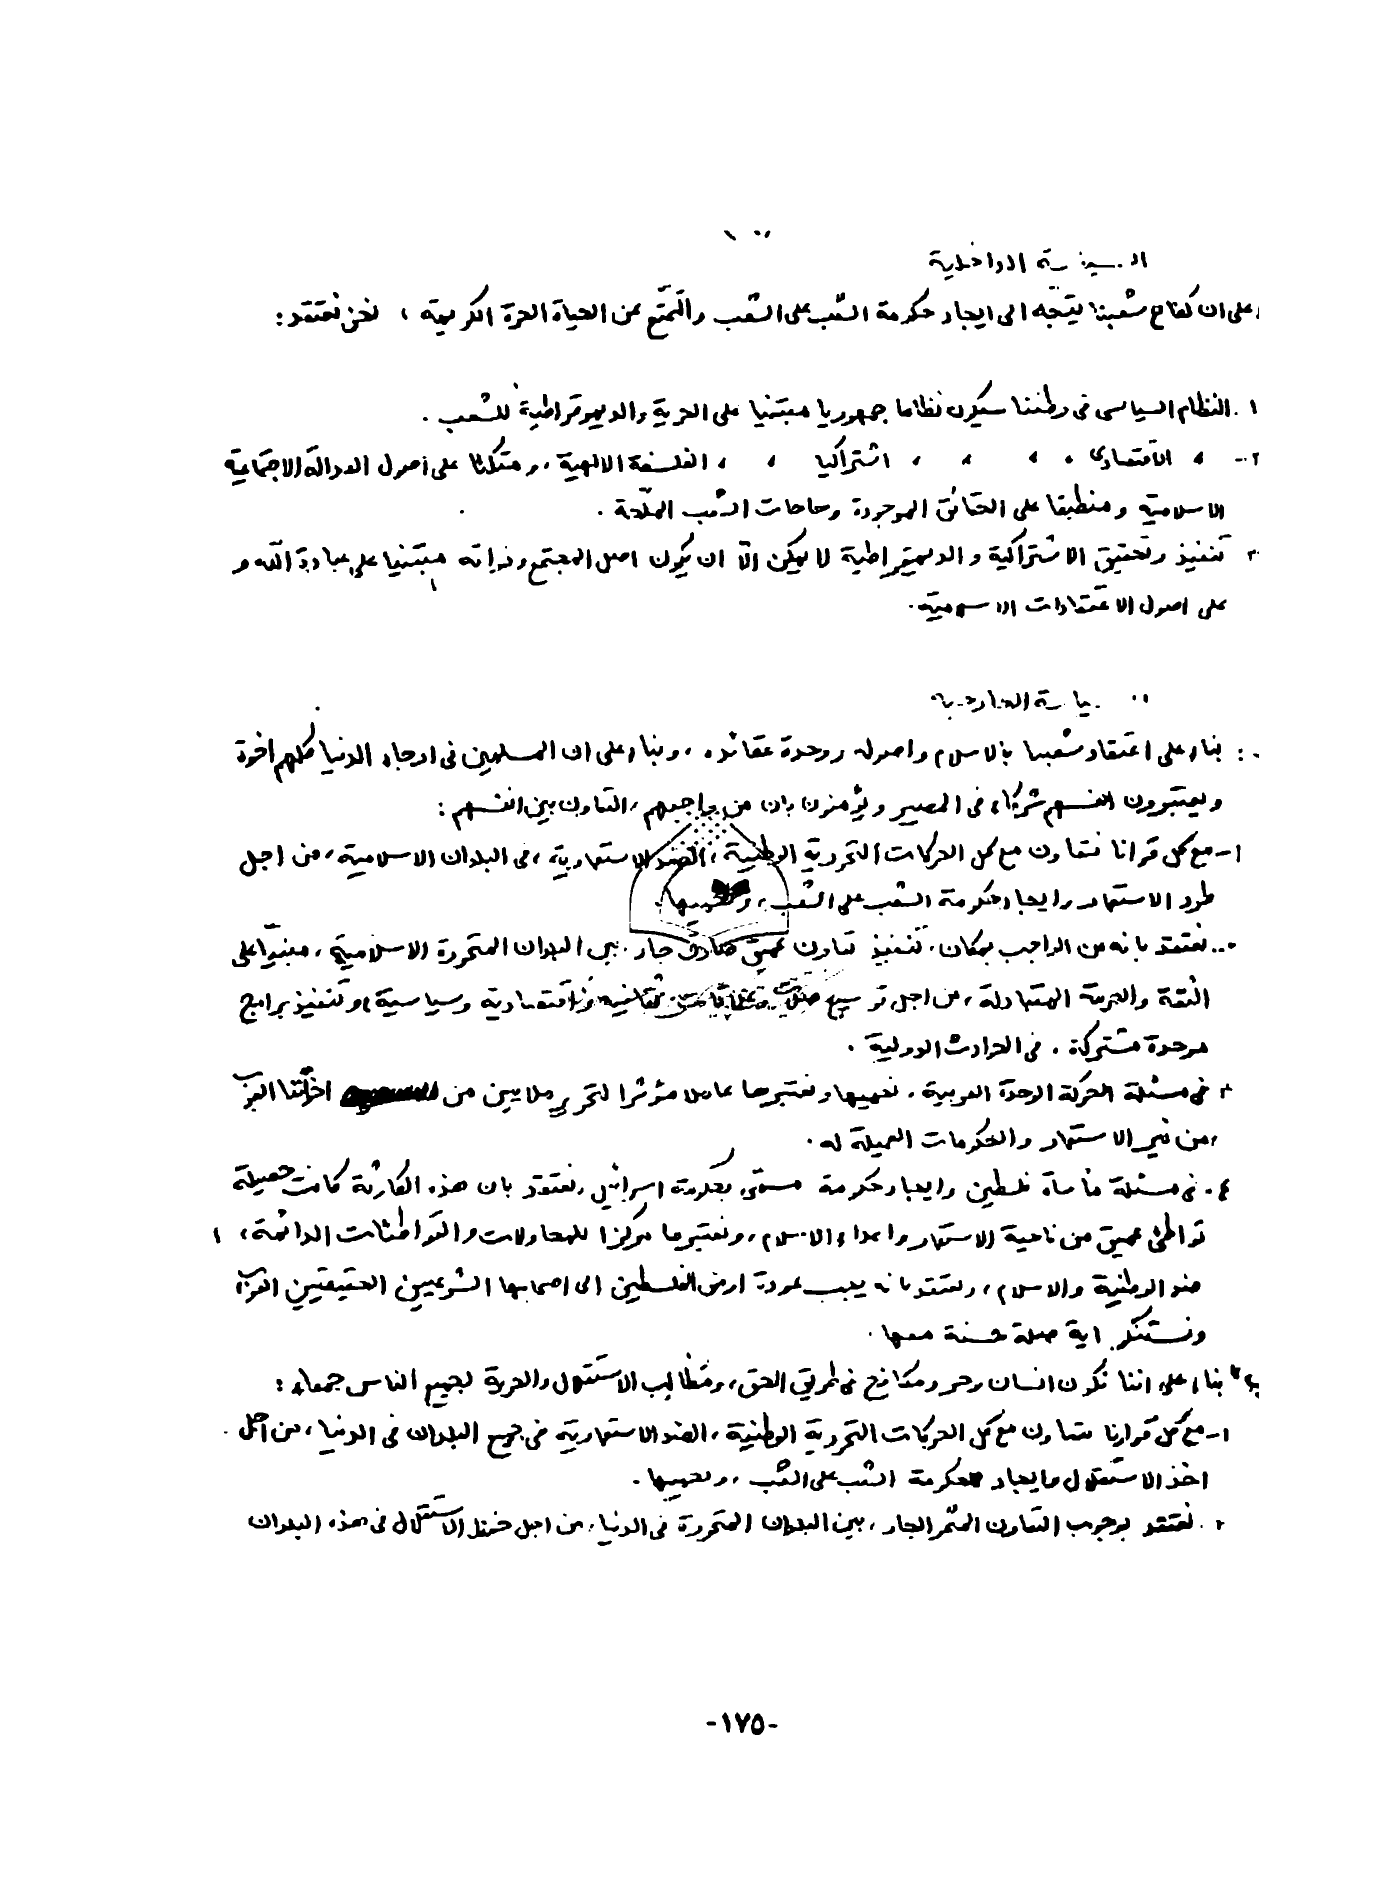 السياسة الداخلية
على ان كفاح شعبنا يتجه الى ايجاد حكومة الشعب على الشعب والتمتع من الحياة الحرة الكريمة ، نحن نعتقد :
١ . النظام السياسى فى وطننا سيكون نظاما جمهوريا مبتنيا على الحرية والديموقراطية للشعب .
٢ - ، الاقتصادى ، ، ، ، اشتراكيا ، ، الفلسفة الالهية ، ومتكئا على اصول العدالة الاجتماعية
الاسلامية ومنطبقا على الحقائق الموجودة وحاجات الشعب الملحة .
تنفيذ وتحقيق الاشتراكية والديمقراطية لا يمكن الّا ان يكون اصل المجتمع وذاته مبتنيا على عبادة الله و
على اصول الاعتقادات
بناء على اعتقاد شعبنا بالاسلام واصوله ووحدة عقائده ، وبناء على ان المسلمين فى ارجاء الدنيا كلهم اخوة
ويعتبرون انفسهم شركاء فى المصير ويؤمنون بان من واجبهم ، التعاون بين انفسهم :
١ - مع كل قوانا نتعاون مع كل الحركات التحررية الوطنية ، الضد الاستعمارية ، فى البلدان الاسلامية ، من اجل
طرد الاستعمار وايجاد حكومة الشعب على الشعب ، ونحميها .
نعتقد بانه من الواجب بمكان ، تنفيذ تعاون عميق صادق جار . بين البلدان المتحررة الاسلامية ، مبنيّا على
الثقة والحرمة المتبادلة ، من اجل توسيع ثقافية واقتصادية وسياسية ، وتنفيذ برامج
موحدة مشتركة . فى الحوادث الدولية .
٣ فى مسئلة الحركة الوحدة العربية . نحميها ونعتبرها عاملا مؤثرا لتحرير ملايين من اخواننا العرب
من نير الاستعمار والحكومات العميلة له .
٤ . فى مسئلة مأساة فلسطين وايجاد حكومة مسمّى بحكومة اسرائيل ، نعتقد بان هذه الكارثة كانت حصيلة
تواطئ عميق من ناحية الاستعمار واعداء الاسلام ، ونعتبرها مركزا للمحاولات والتواطئات الدائمة ،
ضد الوطنية والاسلام ، ونعتقد بانه يجب عودة ارض الفلسطين الى اصحابها الشرعيين الحقيقيين العرب
ونستنكر اية صلة حسنة معها .
بناء على اننا نكون انسان وحر ومكافح فى طريق الحق ، ومطالب الاستقلال والحرية لجميع الناس جمعاء :
١ - مع كل قوانا نتعاون مع كل الحركات التحررية الوطنية ، الضد الاستعمارية فى جميع البلدان فى الدنيا ، من اجل
اخذ الاستقلال وايجاد حكومة الشعب على الشعب ، ونحميها .
٢ . نعتقد بوجوب التعاون المثمر الجار ، بين البلدان المتحررة فى الدنيا ، من اجل حفظ الاستقلال فى هذه البلدان
-١٧٥-